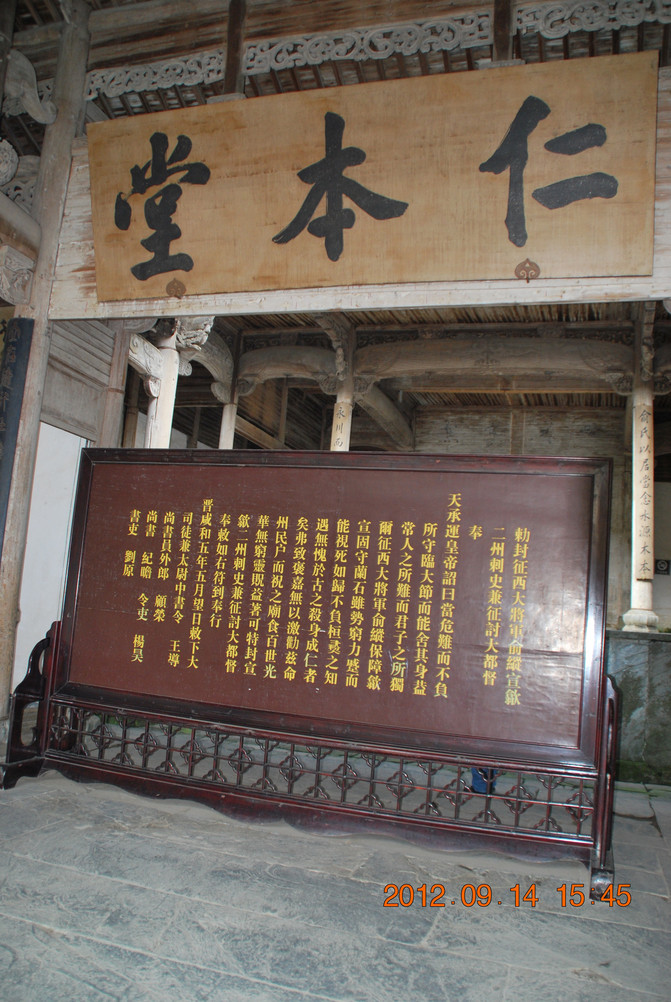 仁本堂
勅封征西大將軍俞縱宣歙
二州刺史兼征討大都督
奉
天承運皇帝詔曰當危難而不負
所守臨大節而能舍其身葢
常人之所難而君子之所獨
爾征西大將軍俞縱保障歙
宣固守蘭石雖勢窮力蹙而
能視死如歸不負桓彞之知
遇無愧於古之殺身成仁者
矣弗致褒嘉無以激勸兹命
州民户而祝之廟食百世光
華無窮靈貺益著可特封宣
歙二州刺史兼征討大都督
奉敕如右符到奉行
晋咸和五年五月望日敕下大
司徒兼太尉中書令 王導
尚書員外郎 顧榮
尚書 紀瞻 令吏 楊昊
書吏 劉原
永川
俞氏以居當念水源木本
2012.09.14 15:45